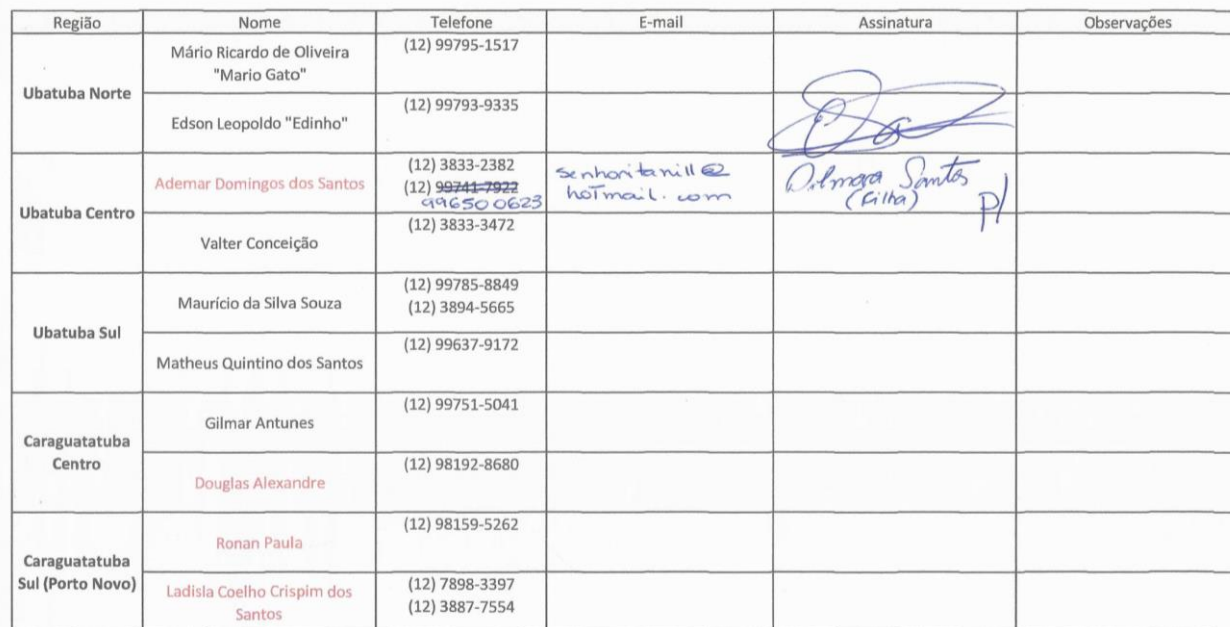 Região Nome Telefone E-mail Assinatura Observações
Ubatuba Norte
Mário Ricardo de Oliveira
"Mario Gato"
(12) 99795-1517
Edson Leopoldo "Edinho"
(12) 99793-9335
Ubatuba Centro
Ademar Domingos dos Santos
(12) 3833-2382
(12) 99741-7922
996500623
senhoritanill@
hotmail.com
Dilmara Santos
(Filha) P/
Valter Conceição
(12) 3833-3472
Ubatuba Sul
Maurício da Silva Souza
(12) 99785-8849
(12) 3894-5665
Matheus Quintino dos Santos
(12) 99637-9172
Caraguatatuba
Centro
Gilmar Antunes
(12) 99751-5041
Douglas Alexandre
(12) 98192-8680
Caraguatatuba
Sul (Porto Novo)
Ronan Paula
(12) 98159-5262
Ladisla Coelho Crispim dos
Santos
(12) 7898-3397
(12) 3887-7554